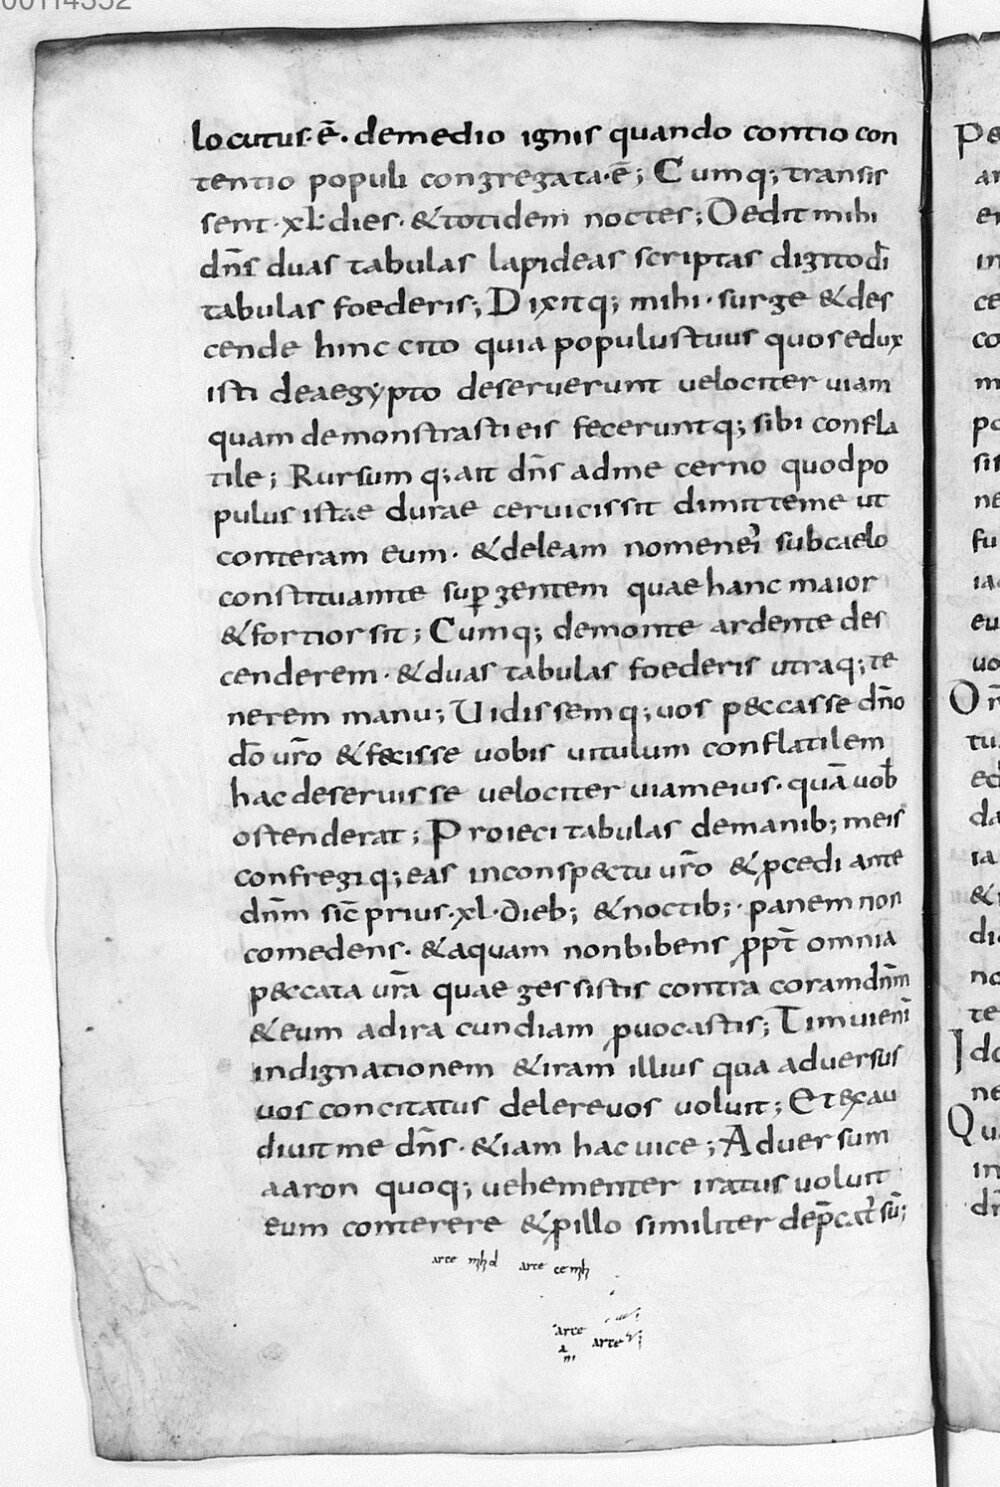 00114352
locutus·ē· demedio ignis quando contio con
tentio populi congregata·ē; Cumq; transis
sent·xl·dies·&totidem noctes; Dedit mihi
dn̄s duas tabulas lapideas scriptas digitodī
tabulas foederis; Dixitq; mihi·surge &des
cende hinc cito quia populustuus quosedux
isti deaegypto deseruerunt velociter uiam
quam demonstrastieis feceruntq; sibi confla
tile; Rursum q; ait dn̄s adme cerno quodpo
pulus istae durae ceruicissit dimitteme ut
conteram eum· &deleam nomenei' subcaelo
constituamte sup̱ gentem quae hanc maior
&fortiorsit; Cumq; demonte ardente des
cenderem·&duas tabulas foederis utraq; te
nerem manu; Uidissemq; uos peccasse dn̄o
dō ur̄o &fecisse uobis uitulum conflatilem
hac deseruisse velociter uiameius·quā uob̄
ostenderat; Proieci tabulas demanib; meis
confregiq; eas inconspectu ur̄o &p̱cedi ante
dn̄m sic̄ prius·xl·dieb; &noctib;·panem non
comedens·&aquam nonbibens p̱pt̄ omnia
peccata ur̄a quae gessistis contra coramdn̄m
&eum adira cundiam p̱uocastis; Timuieni'
indignationem &iram illius qua adversus
uos concitatus delereuos uoluit; Et exau
diuit me dn̄s·&iam hac uice; Aduersum
aaron quoq; uehementer iratus uoluit
eum conterere &p̱illo similiter dep̄cat' sū;
arte arte
arte
arte